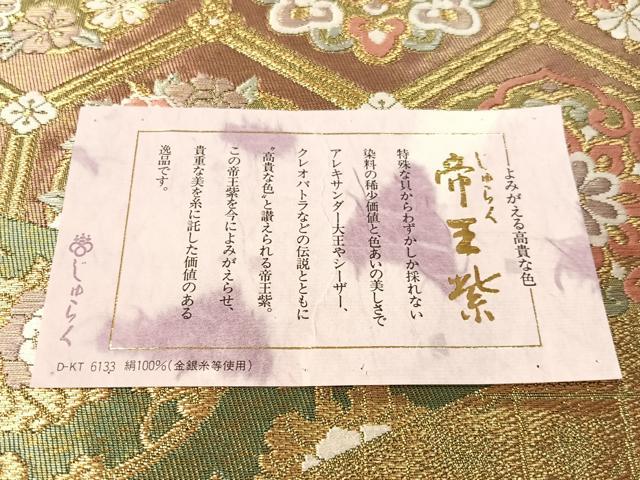 よみがえる高貴な色
じゅらく
帝王紫
特殊な貝からわずかしか採れない
染料の稀少価値と、色あいの美しさで
アレキサンダー大王やシーザー、
クレオパトラなどの伝説とともに
“高貴な色”と讃えられる帝王紫。
この帝王紫を今によみがえらせ、
貴重な美を糸に託した価値のある
逸品です。
じゅらく
D-KT 6133 絹100%(金銀糸等使用)